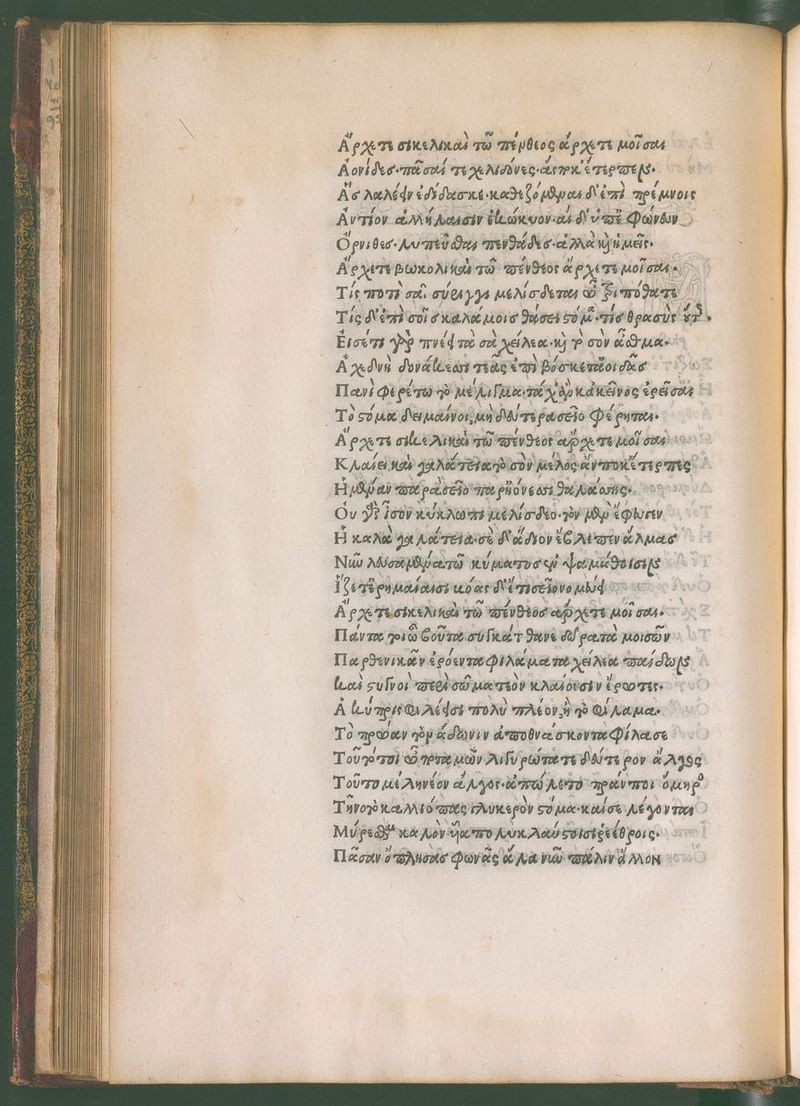 Ἄρχετε σικελικαὶ τῶ πένθεος ἄρχετε μοῖσαι
Ἀονίδες· πᾶσαί τε χελιδόνες· ἅς ποκ' ἔτερπεν·
Ἃς λαλέειν ἐδίδασκε· καθεζόμεναι δ' ἐπὶ πρέμνοις
Ἀντίον ἀλλήλαισιν ἐκώκυον· αἱ δ' ὑπεφώνευν
Ὄρνιθες· λυπεῖσθαι πενθάδες· ἀλλὰ καὶ ἡμεῖς·
Ἄρχετε σικελικαὶ τῶ πένθεος ἄρχετε μοῖσαι·
Τίς ποτὶ σᾷ σύριγγι μελίσδεται ὦ τριπόθατε
Τίς δ' ἐπὶ σοῖς καλάμοις θάσει στόμα· τίς θρασὺς οὕτως·
Εἰσέτι γὰρ πνέει τὰ σὰ χείλεα· καὶ τὸ σὸν ἆσθμα·
Ἀχεδνὴ δονάκεσσι τεὰς ἐπὶ βόσκετ' ἀοιδᾶς
Πανὶ φέρω τὸ μέλιγμα· τάχ' ἂν κἀκεῖνος ἐρεῖσαι
Τὸ στόμα δειμαίνοι, μὴ δεύτερα σεῖο φέρηται·
Ἄρχετε σικελικαὶ τῶ πένθεος ἄρχετε μοῖσαι
Κλαίει καὶ γαλάτεια τὸ σὸν μέλος ἅν ποκ' ἔτερπες
Ἡμέναν παρὰ σεῖο παρ' ἠιόνεσσι θαλάσσης·
Οὐ γὰρ ἴσον κύκλωπι μελίσδεο· τὸν μὲν ἔφυγεν
Ἡ καλὰ γαλάτεια· σὲ δ' ἅδιον ἔβλεπεν ἅλμας
Νῦν λάσαμένα τῶ κύματος ἐν ψαμάθοισιν
Ἵζετ' ἐρημαίαισι βόας δ' ἔτι σεῖο νομεύει
Ἄρχετε σικελικαὶ τῶ πένθεος ἄρχετε μοῖσαι·
Πάντα τοι ὦ βοῦτα συγκάτθανε δῶρα τὰ μοισῶν
Παρθενικᾶν ἐρόεντα φιλάματα χείλεα παίδων
Καὶ στυγνοὶ περὶ σῶμα τεὸν κλαίουσιν ἔρωτες·
Ἁ κύπρις φιλέει σε πολὺ πλέον, ἢ τὸ φίλαμα·
Τὸ πρώαν τὸν ἄδωνιν ἀποθνάσκοντα φίλασε
Τοῦτό τοι ὦ ποταμῶν λιγυρώτατε δεύτερον ἄλγος
Τοῦτο μέλη νέον ἄλγος· ἀπώλετο πρᾶν τοι ὅμηρος
Τῆνο τὸ καλλιόπας γλυκερὸν στόμα· καί σε λέγονται
Μύρεσθαι καλὸν υἷα πολυκλαύστοισι ῥεέθροις·
Πᾶσαν δ' ἔπλησας φωνᾶς ἅλα νῦν πάλιν ἄλλον